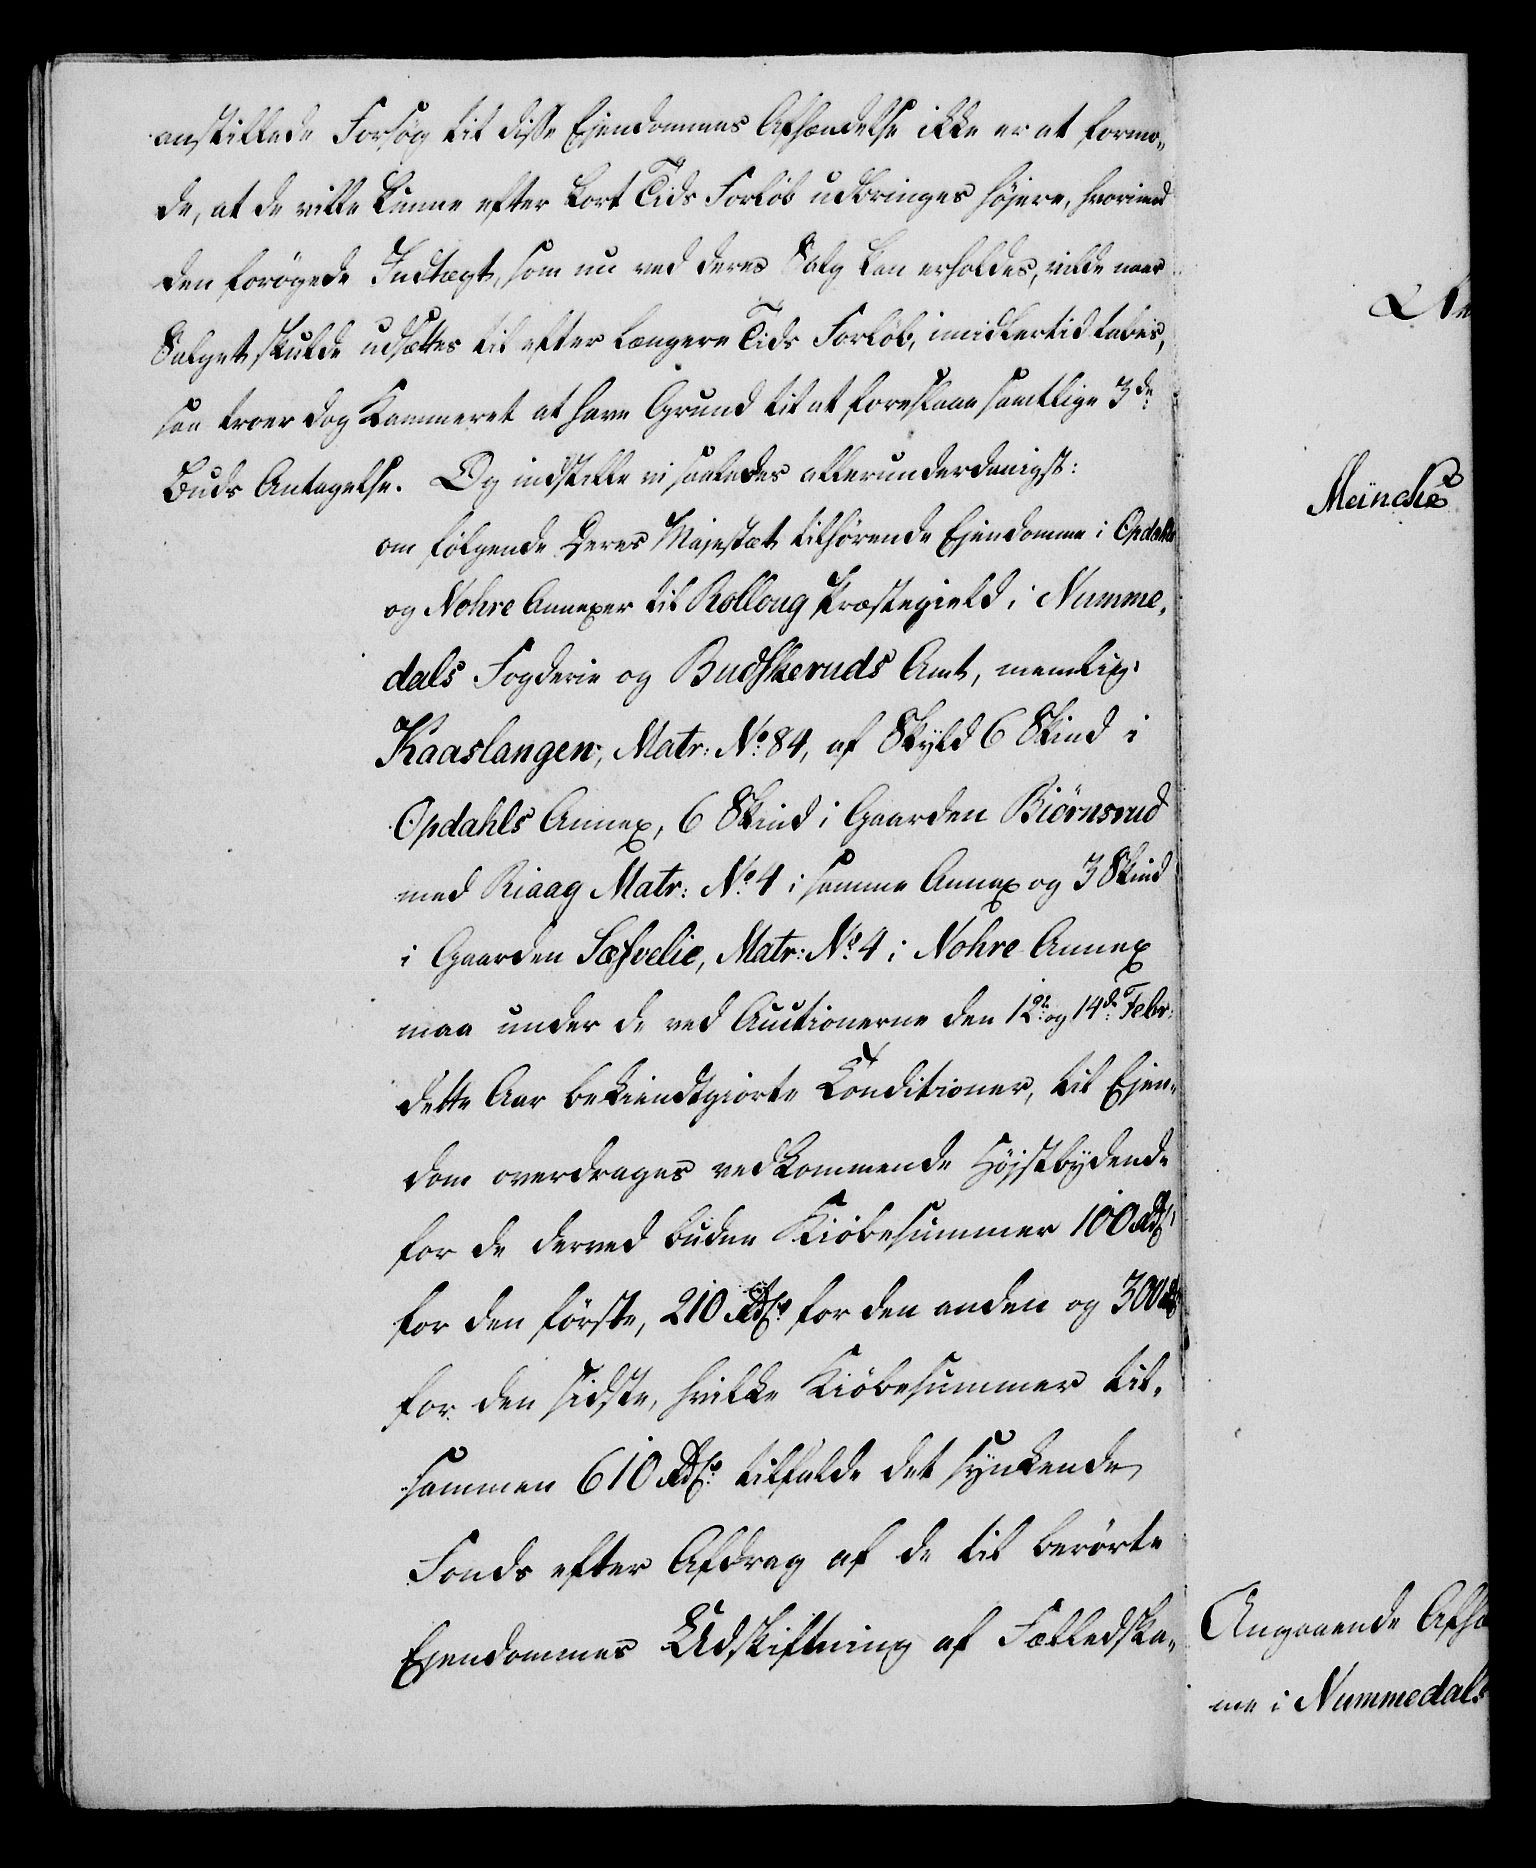 anstillede Forsøg til disse Ejendommes Afhændelse ikke er at formo-
de, at de ville kunne efter kort Tids Forløb udbringes højere, hvorimod
den forøgede Indtægt, som nu ved deres Salg kan erholdes, vilde naar
Salget skulde udsættes til efter længere Tids Forløb, imidlertid tabes,
saa troer dog Kammeret at have Grund til at foreslaae samtlige 3de
Buds Antagelse. Og indstille vi saaledes allerunderdanigst:
om følgende Deres Majestæt tilhørende Ejendomme i Opdahls
og Nohre Annexer til Rolloug Præstegield i Numme-
dals Fogderie og Budskeruds Amt, nemlig:
Kaaslangen, Matr: No 84, af Skyld 6 Skind i
Opdahls Annex, 6 Skind i Gaarden Biörnsrud
med Riaag Matr: No 4 i samme Annex og 3 Skind
i Gaarden Sæsvelie, Matr: No 4 i Nohre Annex
maa under de ved Auctionerne den 12te og 14de Febr:
dette Aar bekiendtgiorte Conditioner, til Ejen-
dom overdrages vedkommende Højstbydende
for de derved budne Kiöbesummer 100 Rdlr
for den første, 210 Rdlr for den anden og 300 Rdlr
for den sidste, hvilke Kiöbesummer til-
sammen 610 Rdlr tilfalde det synkende
Fonds efter Afdrag af de til berørte
Ejendommes Udskiftning af Fælledska-
Meinche
Angaaende Afhæ
me i Nummedals